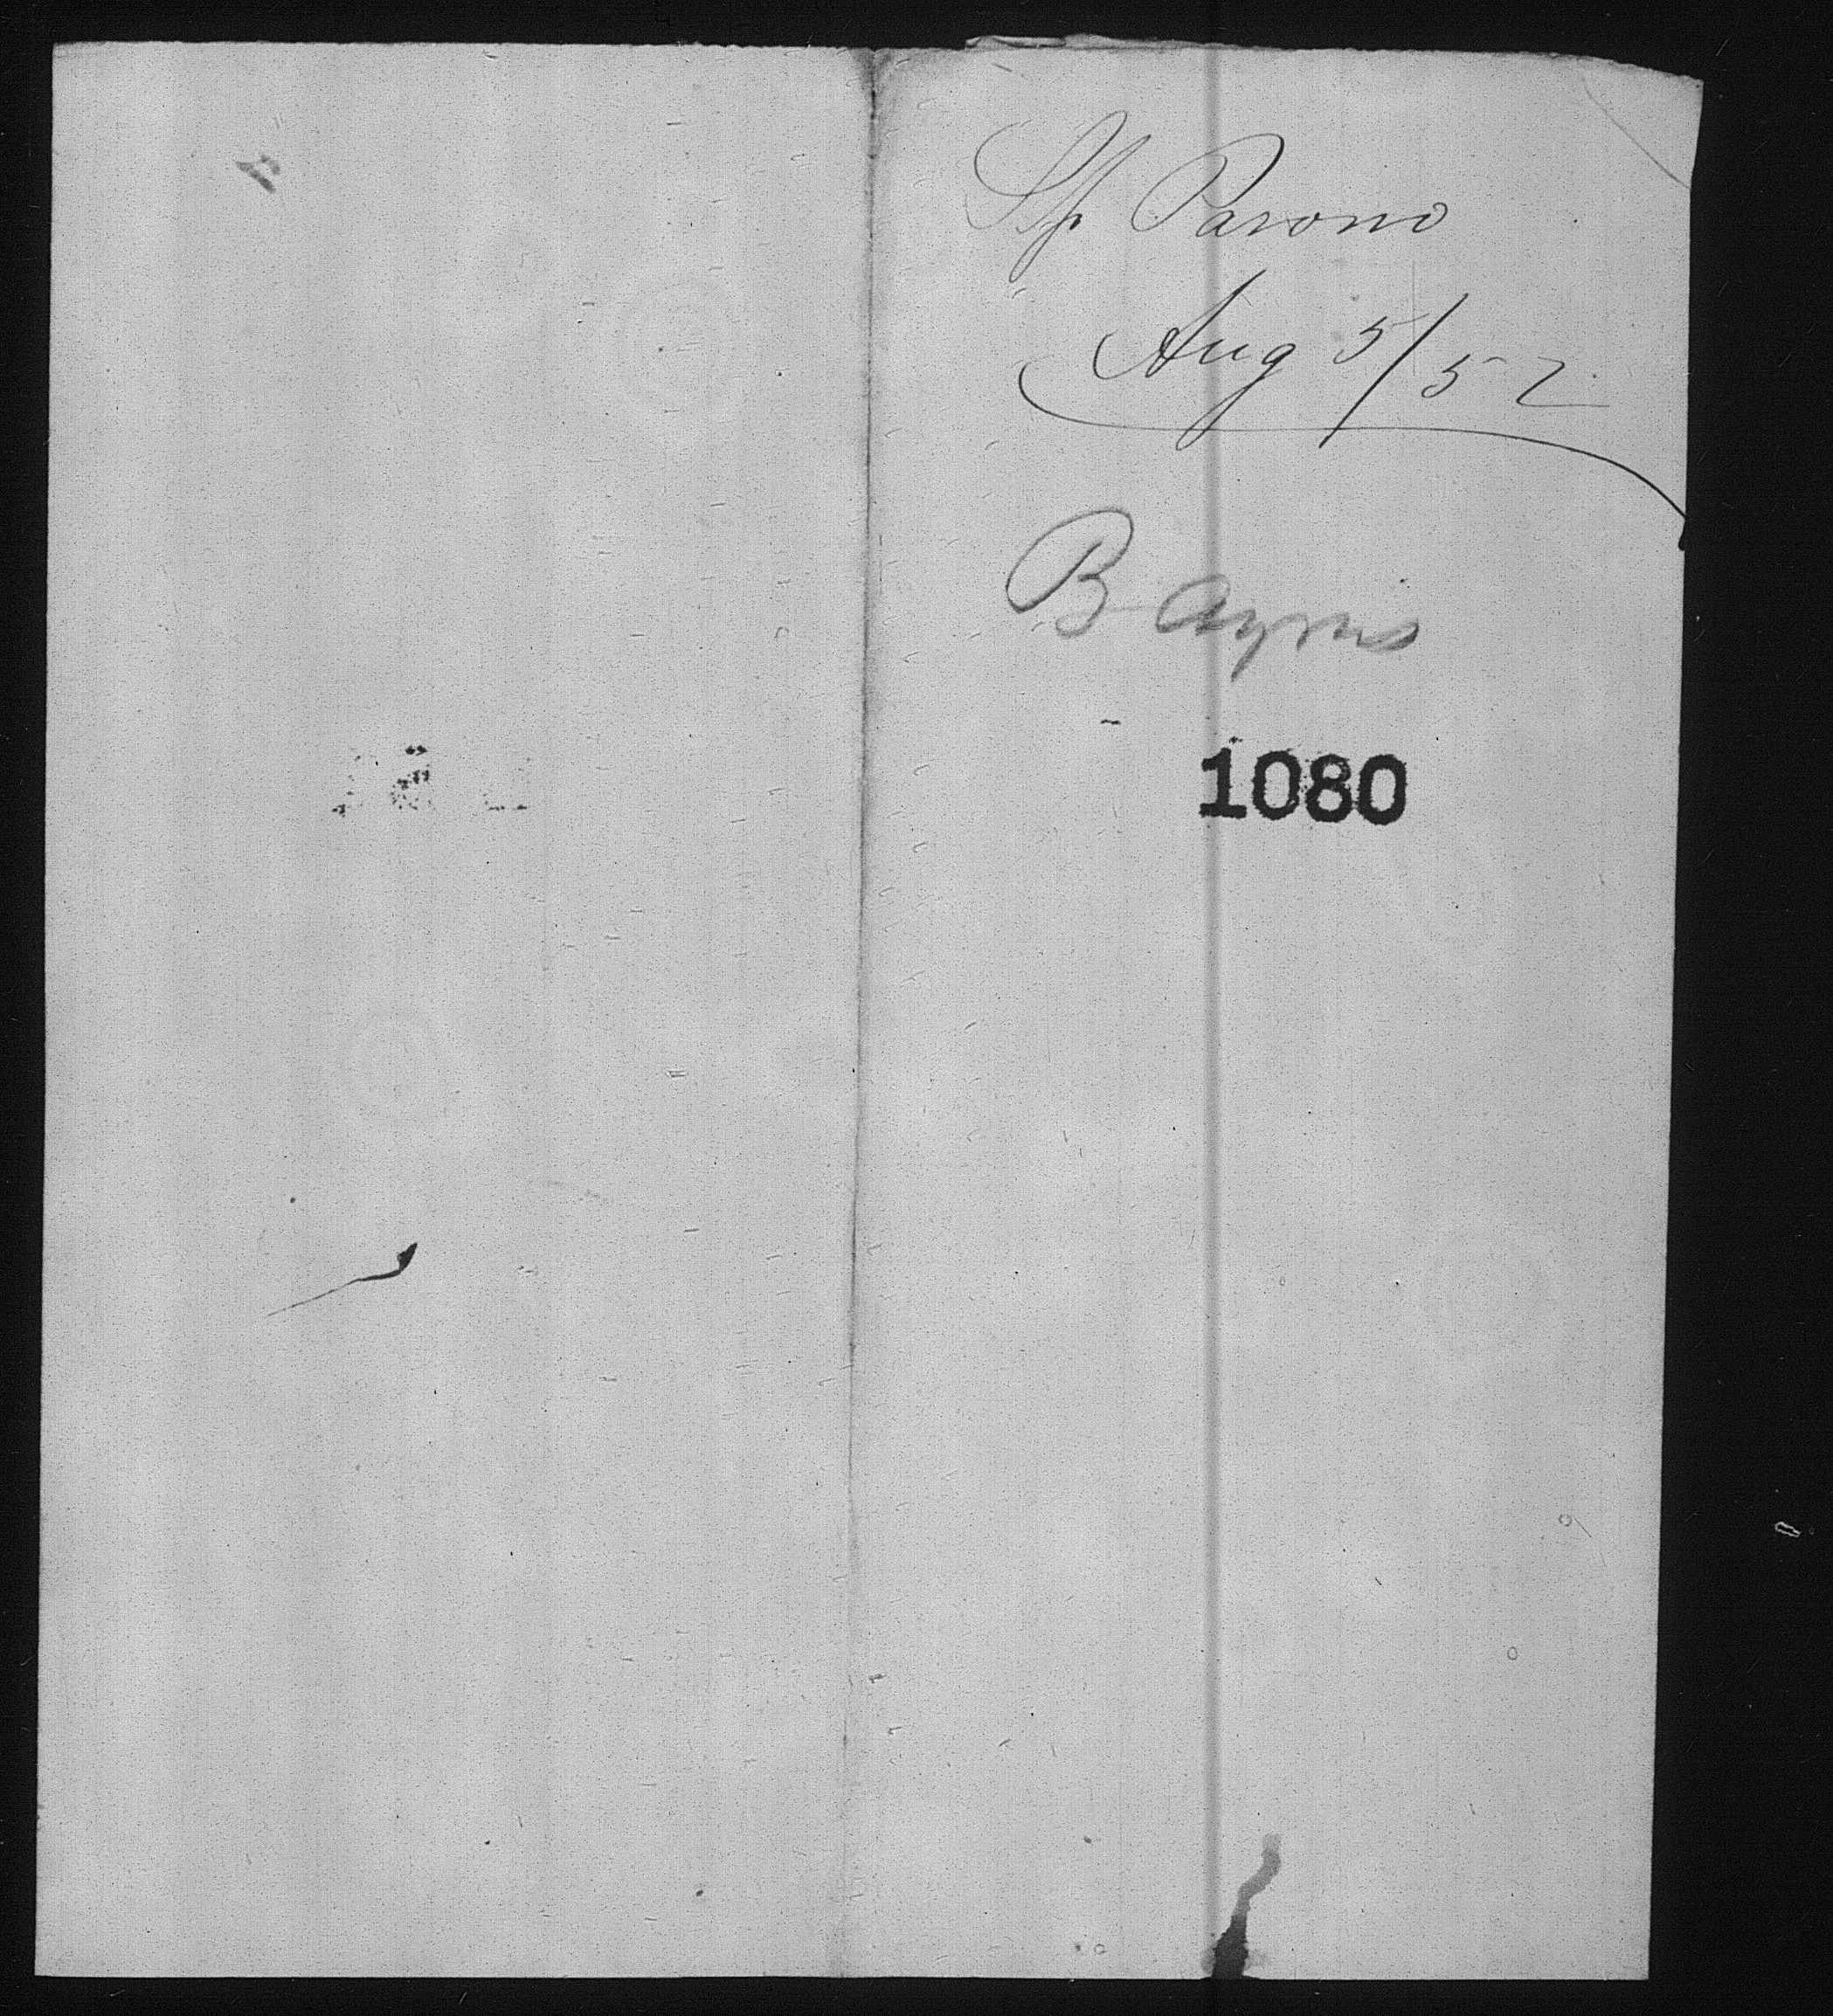 Parono
Aug 5/52
B Ayris
1080